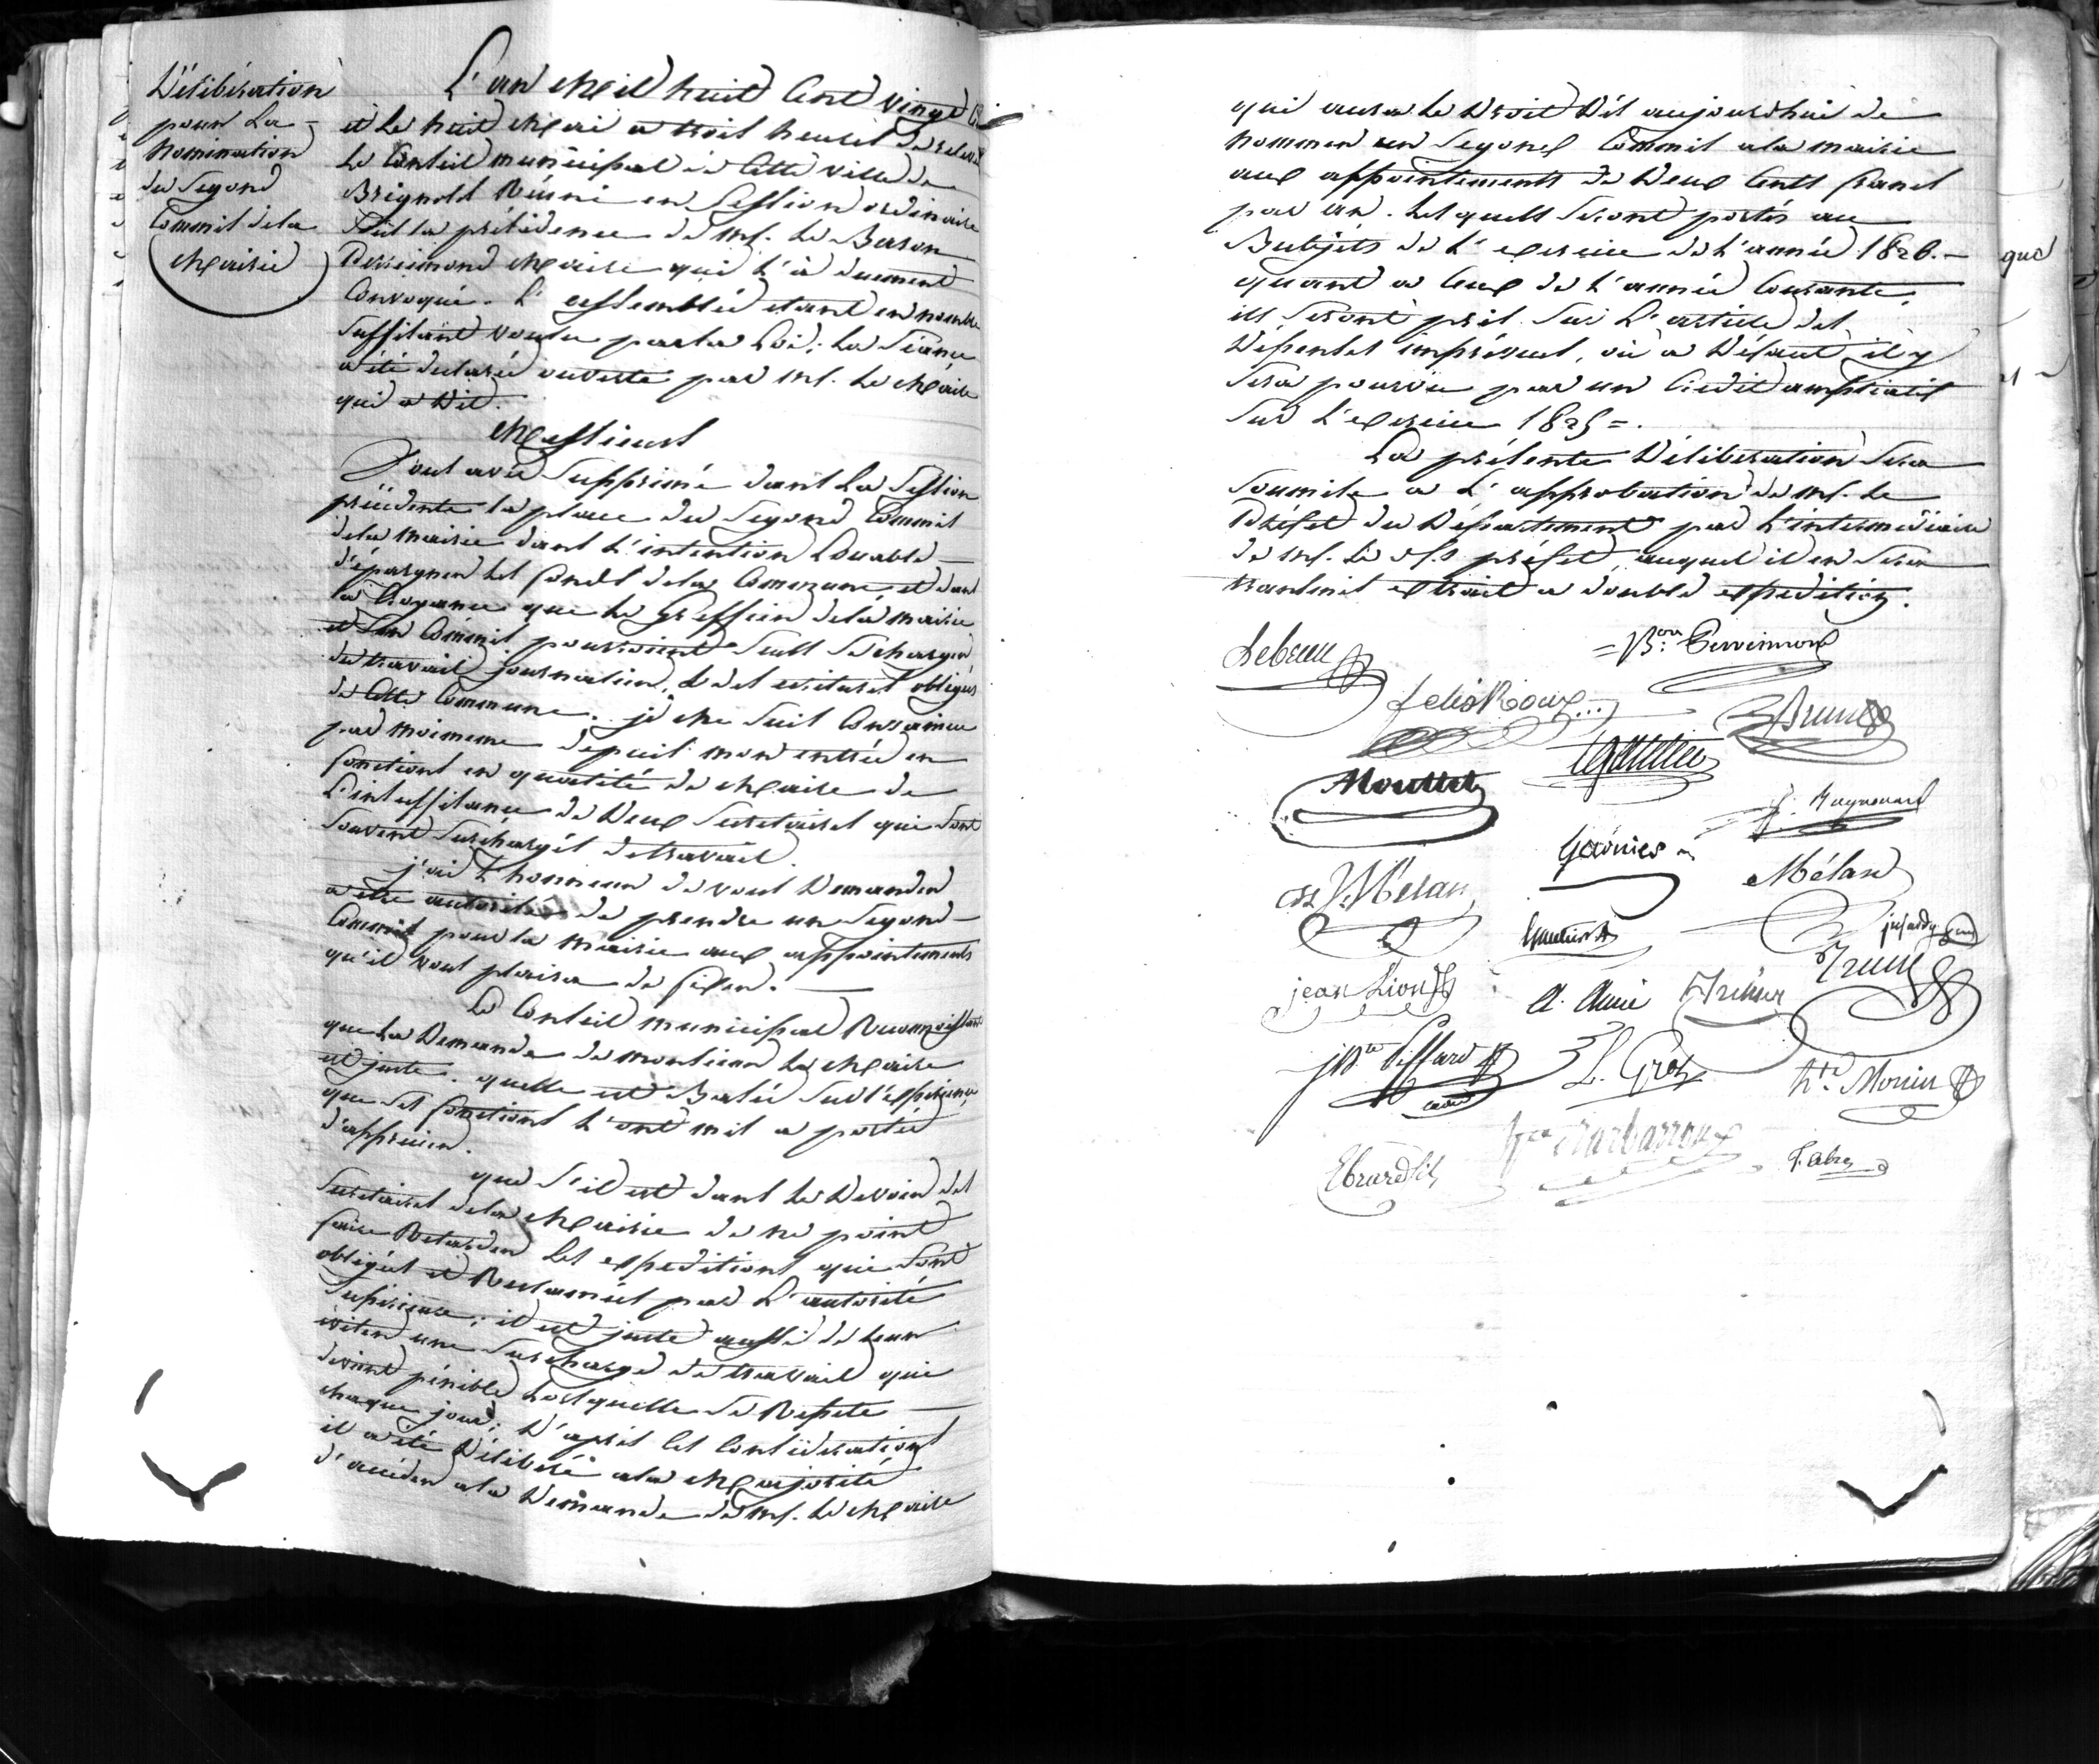 Déliberation
pour La
Nomination
du Segond
Commis dela
Mairie
L'an Mil huit Cent vingt
et le huit Mai a trois heures de relevée
Le Conseil municipal de Cette ville de
Brignoles Réuni en Session ordinaire
sous la présidence de Mr. Le Baron
Perreimond Maire qui l'a duement
Convoqué. L'assemblée etant en nombre
suffisant voulu par la Loi; La Séance
a été declarée ouverte par Mr. Le Maire
qui a Dit.
Messieurs
Vous avés Supprimé dans La Session
précédente la place du Segond Commis
dela mairie dans L'intention Louable
d'épargner les fonds dela Commune, et dans
la Croyance que le greffier dela mairie
et un Commis pourroient Seuls se charger
du travail journalier, & des ecritures obligées
de Cette Commune. je Me Suis Convaincu
par moimeme depuis mon entrée en
fonctions en qualité de Maire de
L'insuffisance de Deux Secretaires qui sont
souvent Surchargés de travail.
j'ai L'honneur de vous Demander
a être autorisé de prendre un Segond
Commis pour la mairie aux appointements
qu'il vous plaira de fixer.
Le Conseil municipal Reconnoissant
que La Demande de monsieur Le Maire
est juste. quelle est Basée sur l'expérience
que ses fonctions L'ont mis a portée
d'apprecier.
que S'il est dans le Devoir des
Secretaires dela Mairie de ne point
faire Retarder Les expeditions qui sont
obligées et Reclamées par L'autorité
Superieure, il est juste aussi de leur
eviter une Surcharge de travail qui
devient pénible Lorsquelle se Repete
chaque jour; D'après Ces Considerations
il a été Déliberé ala Majorité
d'accéder ala Demande de Mr. Le Maire
qui aura le Droit Dès aujourdhui de
nommer un Segond Commis ala mairie
aux appointements de Deux Cents francs
par an. Lesquels Seront portés au
Budjets de L'exercice de L'année 1826.
quant a Ceux de L'année Courante,
ils Seront pris Sur L'article des
Dépenses imprévues, où a Défaut il y
Sera pourvu par un Credit ampliatif
Sur L'exercice 1825=.
La présente Déliberation Sera
Soumise a L'approbation de Mr. Le
Préfet du Département par L'intermédiaire
de Mr. Le Ss préfet, auquel il en Sera
transmis extrait a double expedition.
Lebrun
Bon. Perreimond
felix Roux
Brun
Mouttet
J. Raynouard
Garnier
J. Mélan
Mélan
jean Lion
A. Amic
Trucy
L. Gros
hte. Monin
Barbarroux
Ebrard fils
Fabre
que